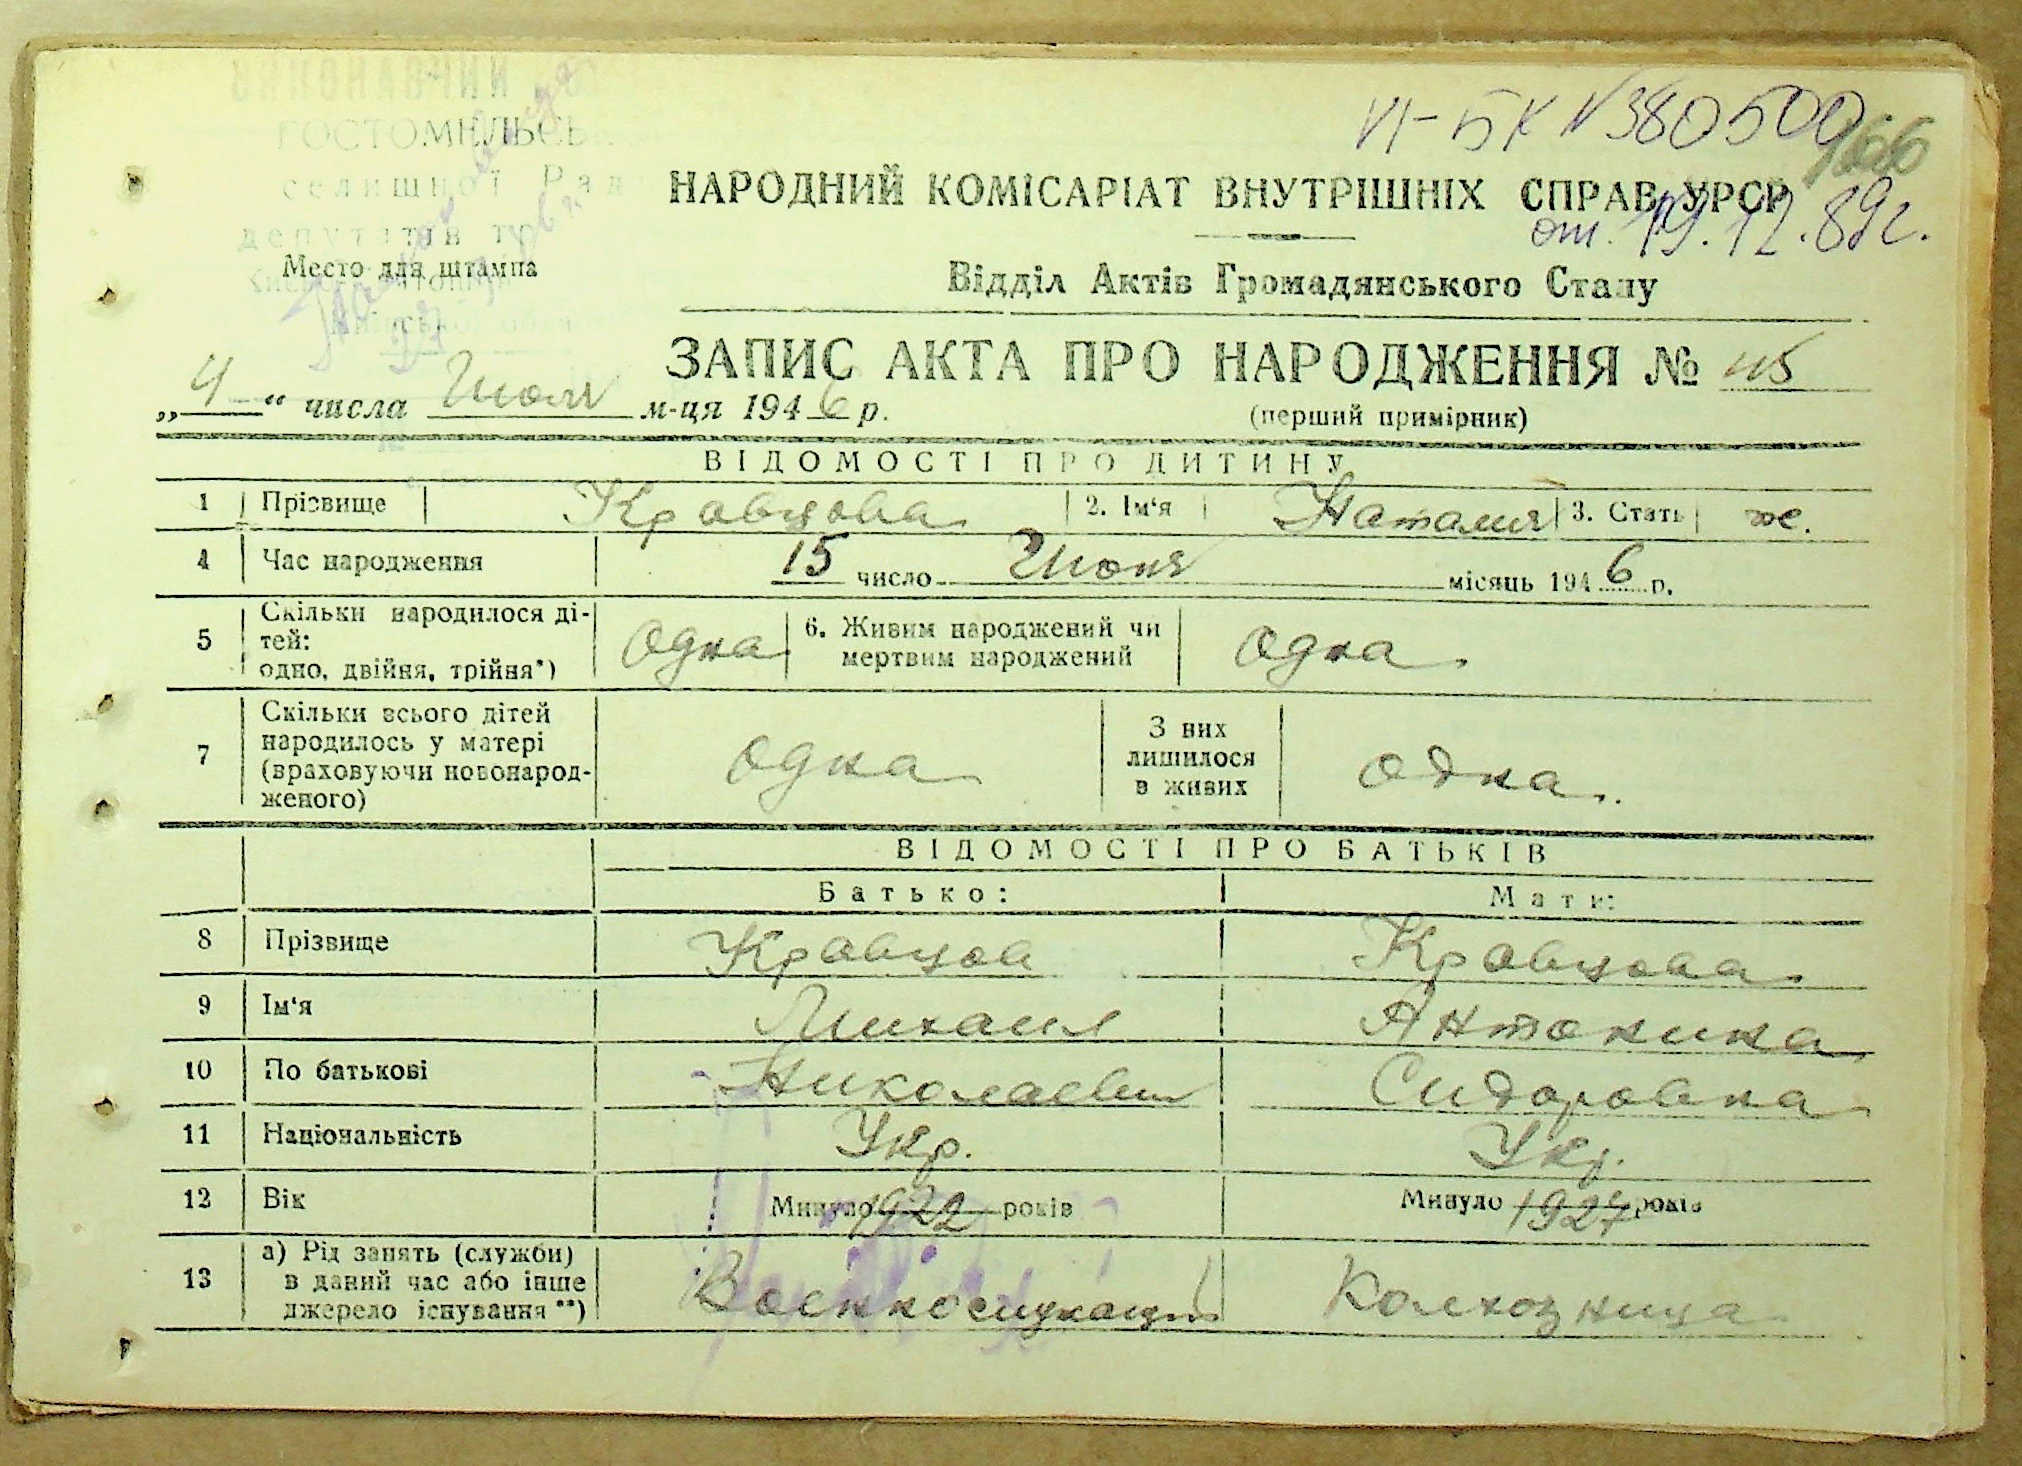 ВИКОНАВЧИЙ
ГОСТОМЕЛЬСЬ
селищної Рад
депутатів тр
Место для штампа
VI-БК N 380500
166
НАРОДНИЙ КОМІСАРІАТ ВНУТРІШНІХ СПРАВ УРСР
от. 19.12.89г.
Відділ Актів Громадянського Стану
ЗАПИС АКТА ПРО НАРОДЖЕННЯ № 45
„4“ числа Июля м-ця 1946 р.
(перший примірник)
ВІДОМОСТІ ПРО ДИТИНУ
1 Прізвище Кравцова 2. Ім‘я Наталия 3. Стать ж.
4 Час народження 15 число Июня місяць 1946 р.
5 Скільки народилося ді-
тей:
одно, двійня, трійня*) одна 6. Живим народжений чи
мертвим народжений одна.
7 Скільки всього дітей
народилось у матері
(враховуючи новонарод-
женого) одна З них
лишилося
в живих одна.
ВІДОМОСТІ ПРО БАТЬКІВ
Батько: Мати:
8 Прізвище Кравцов Кравцова
9 Ім‘я Михаил Антонина
10 По батькові Николаевич Сидоровна
11 Національність Укр. Укр.
12 Вік Минуло 1922 років Минуло 1927 років
13 а) Рід занять (служби)
в даний час або інше
джерело існування**) Военнослужащий Колхозница